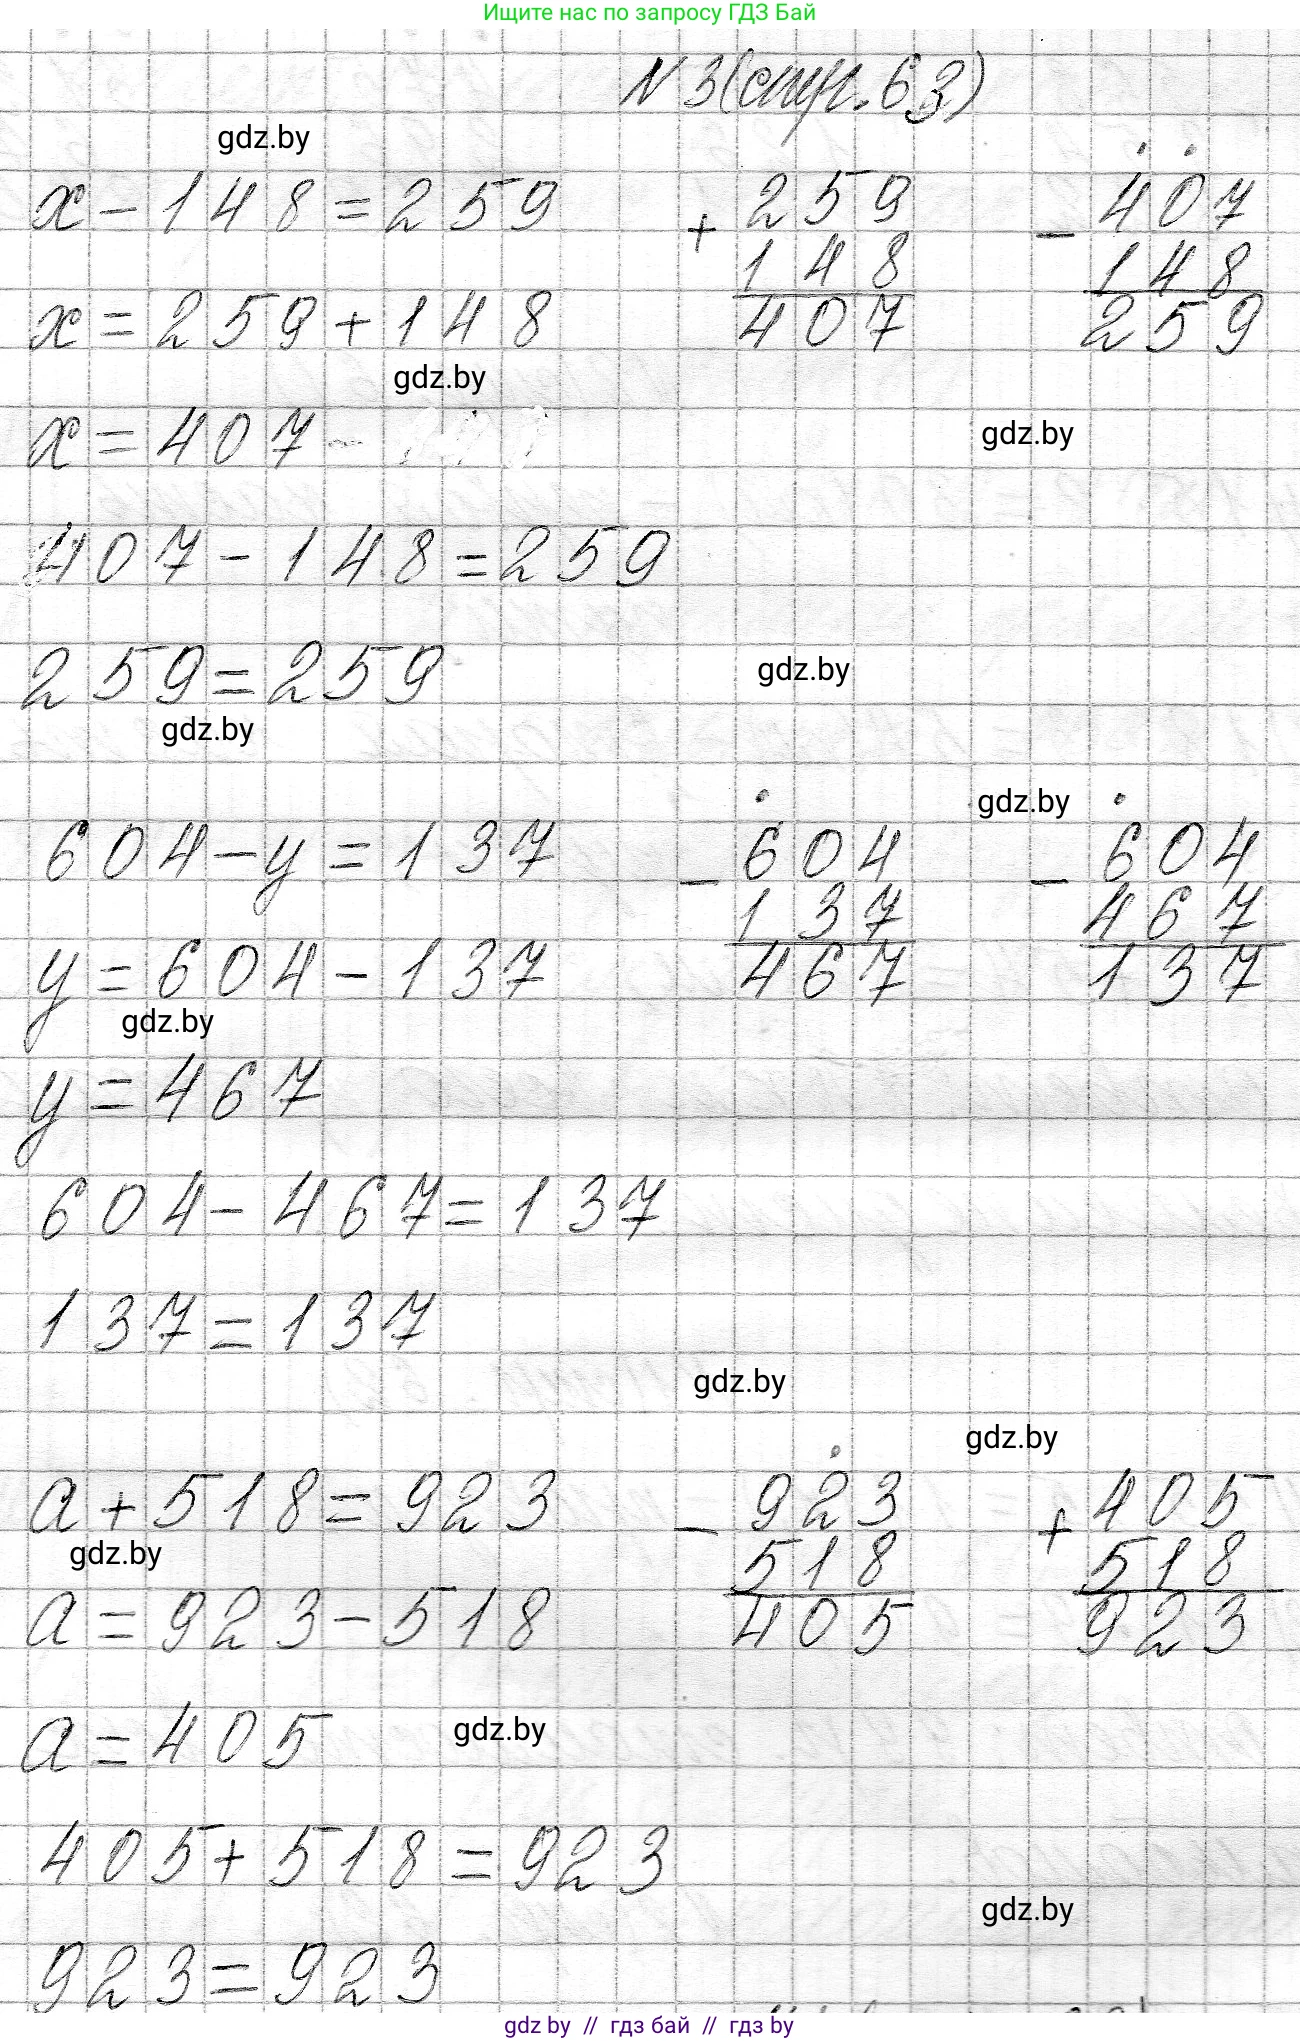 Ищите нас по запросу ГДЗ Бай
N 3 (стр. 63)
gdz.by
x - 148 = 259
+ 259
148
407
- 407
148
259
x = 259 + 148
gdz.by
x = 407
gdz.by
407 - 148 = 259
259 = 259
gdz.by
gdz.by
604 - y = 137
- 604
137
467
gdz.by
- 604
467
137
y = 604 - 137
gdz.by
y = 467
604 - 467 = 137
137 = 137
gdz.by
gdz.by
a + 518 = 923
- 923
518
405
+ 405
518
923
gdz.by
a = 923 - 518
a = 405
gdz.by
405 + 518 = 923
gdz.by
923 = 923
gdz by // гдз бай // гдз by